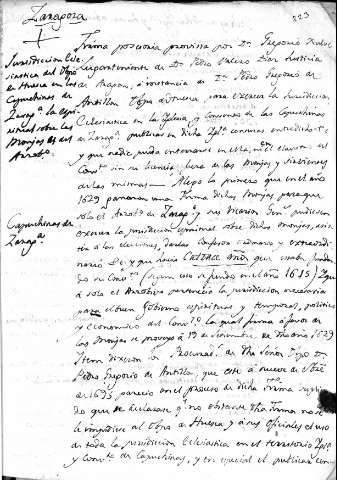 Zaragoza
223
Jurisdiccion Ecle-
siastica del Obpo
en Huesca en los
Capuchinas de
Zarag.ª
Monjas es del
Arzob.º
Firma posesoria provista por Dn. Gregorio
Lugarteniente de Dn. Pedro Valero Diaz Justicia
de Aragon, á instancia de Dn. Pedro Gregorio de
Antillon Obpo de Huesca para exercer la Jurisdiccion
Eclesiastica en la Iglesia y Convento de las Capuchinas
de Zarag.ª publicar en dicha Igl.ª censuras
y que nadie pueda entrar en ella, ni el claustro del
Conv.to sin su licencia, fuera de las Monjas y sirvientes
de las mismas — Alego lo primero que en el año
1629 ganaron una Firma dichas Monjas para que
solo el Arzob.º de Zarag.ª y sus Vicarios Gen.s pudiesen
exercer la jurisdiccion sobre dichas Monjas, asis-
tir á las elecciones, darlas Confesor ordinario y extraordi-
nario &c. y que hacia catorce años que estaba funda-
do su Conv.to (segun esto se fundo en el año 1615) y que
á solo el Arzobispo pertenecia la jurisdiccion necesaria
para el buen Gobierno espiritual y temporal, politico
y economico del Conv.to la qual firma á favor de
las Monjas se proveyó á 19 de Deciembre de dho año 1629
Capuchinas de
Zarag.ª
Item dixeron los Procurad.s de dho Señor Obpo Dn.
Pedro Gregorio de Antillon, que este á nueve de
de 1695 parecio en el proceso de dicha Firma suplican-
do que se declarase q. no obstante dha Firma no se
le impidiese al Obpo de Huesca y á sus oficiales el uso
de toda la jurisdiccion Eclesiastica en el territorio Igl.ª
y Conv.to de Capuchinas, y en especial el publicar cen-